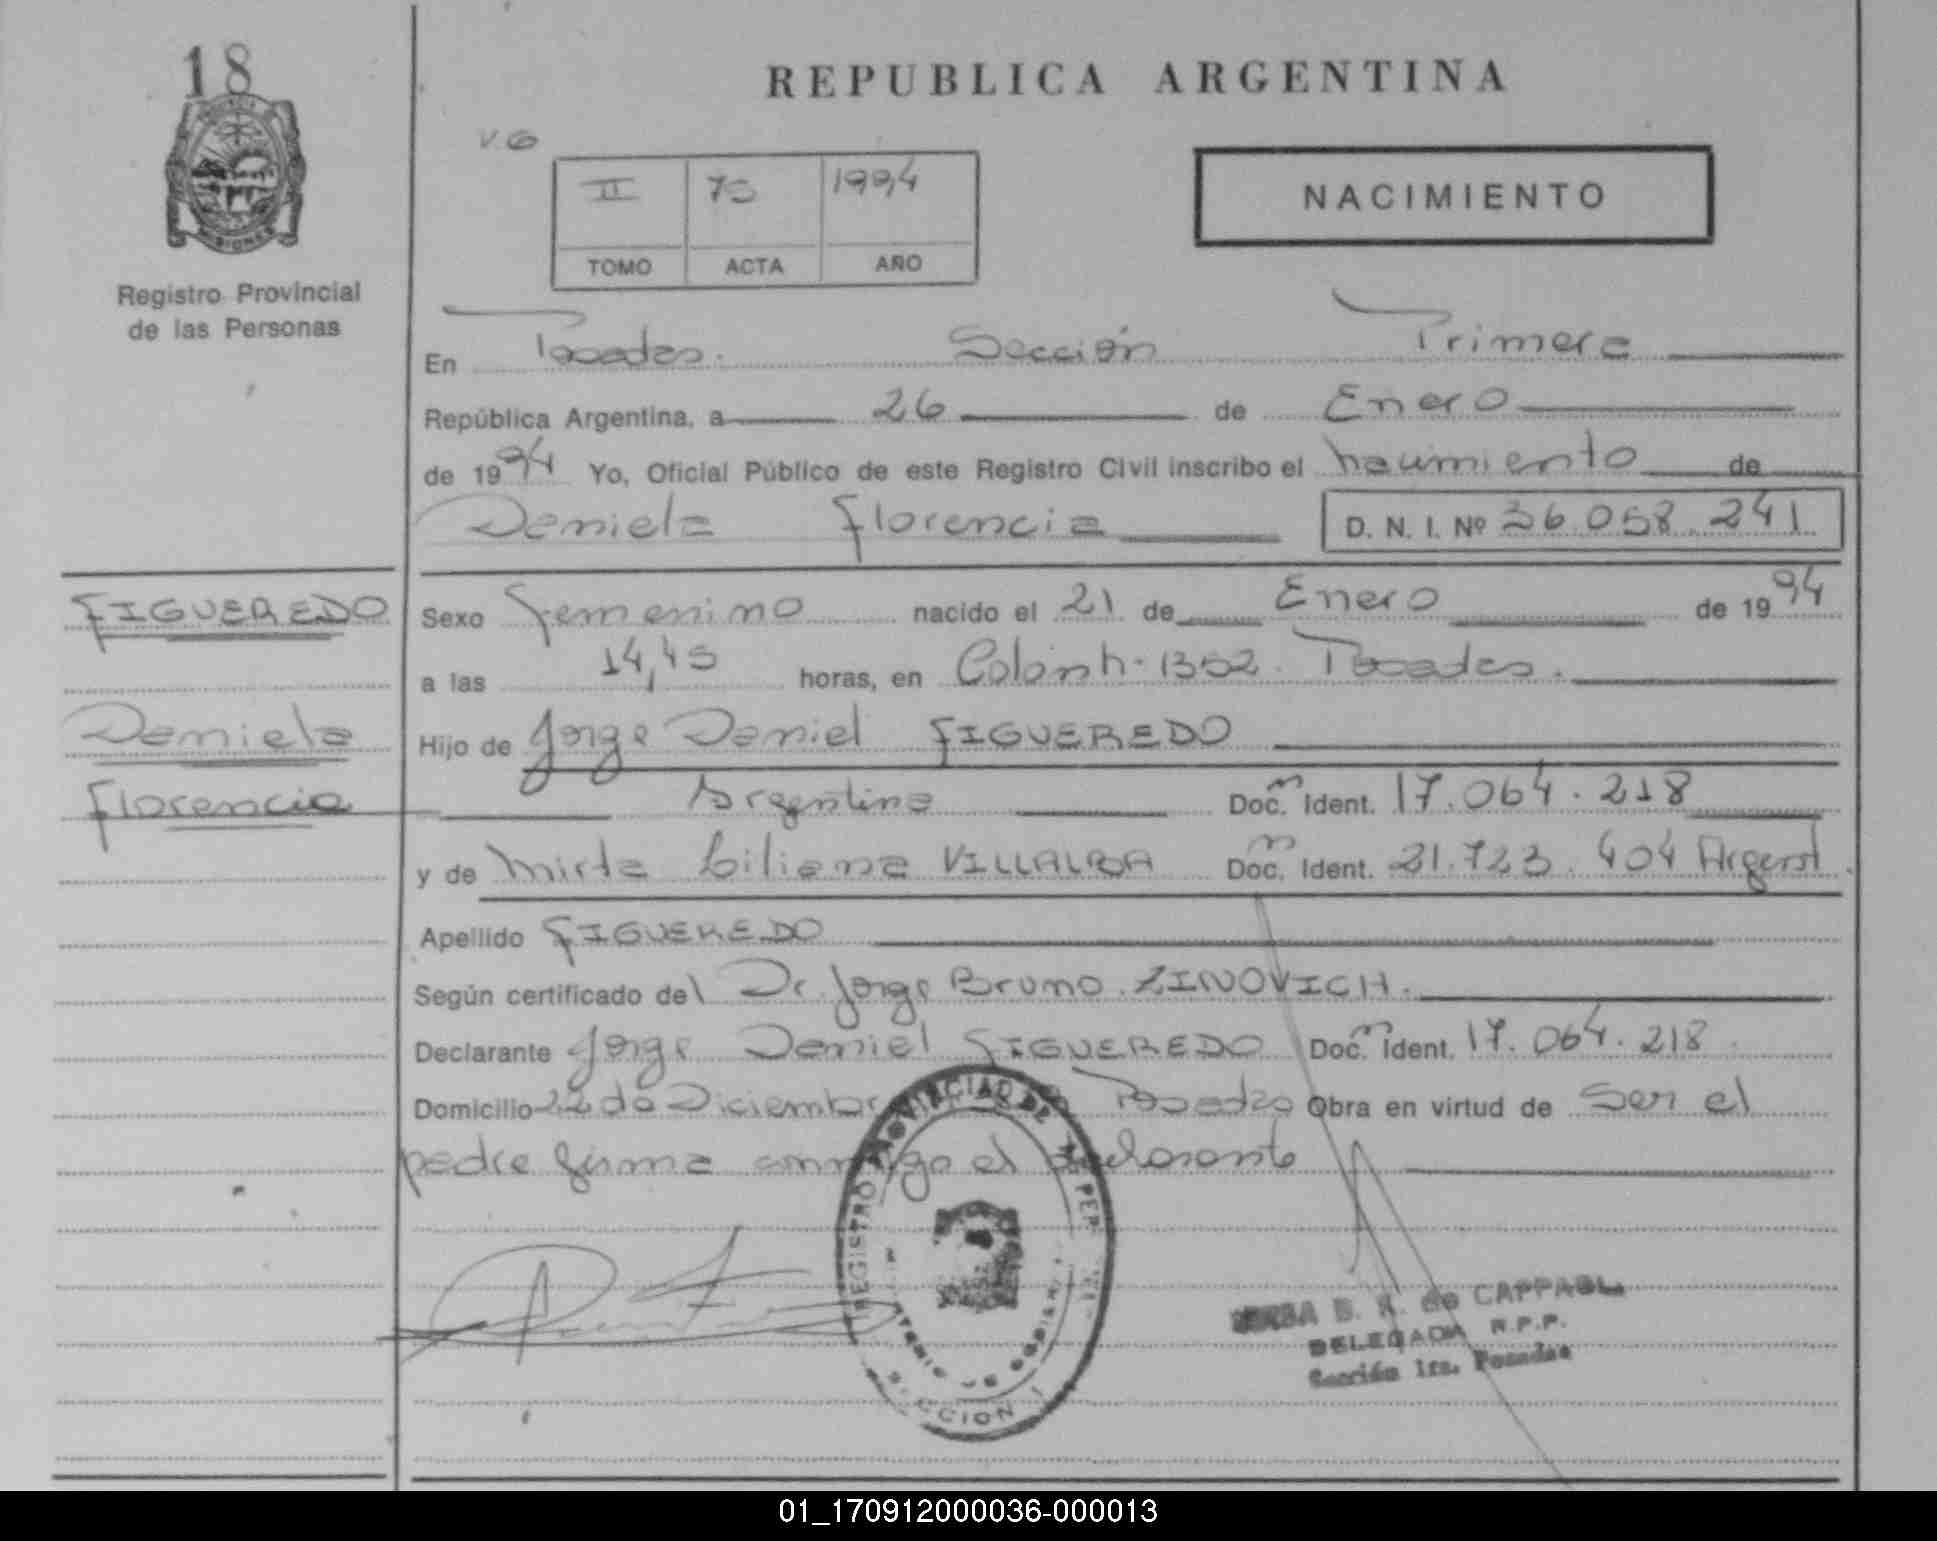 18
REPUBLICA ARGENTINA
V.G
II 75 1994
NACIMIENTO
TOMO ACTA AÑO
MISIONES
Registro Provincial
de las Personas
En Posadas. Sección Primera
República Argentina, a 26 de Enero
de 1994 Yo, Oficial Público de este Registro Civil inscribo el nacimiento de
Daniela Florencia D. N. I. Nº 36.058.241
FIGUEREDO
Sexo Femenino nacido el 21 de Enero de 1994
a las 14,45 horas, en Colón n· 1352. Posadas.
Daniela
Hijo de Jorge Daniel FIGUEREDO
Florencia
Argentina Doc. Ident. 17.064.218
y de Mirta Liliana VILLALBA Doc. Ident. 21.723.404 Argent.
Apellido FIGUEREDO
Según certificado del Dr. Jorge Bruno ZINOVICH.
Declarante Jorge Daniel FIGUEREDO Doc. Ident. 17.064.218
Domicilio 22 de Diciembre Posadas Obra en virtud de Ser el
padre firma conmigo el declarante
REGISTRO PROVINCIAL DE PER
SECCION 1
B. de CAPPABL
DELEGADA R.P.P.
Sección 1ra. Posadas
01_170912000036-000013